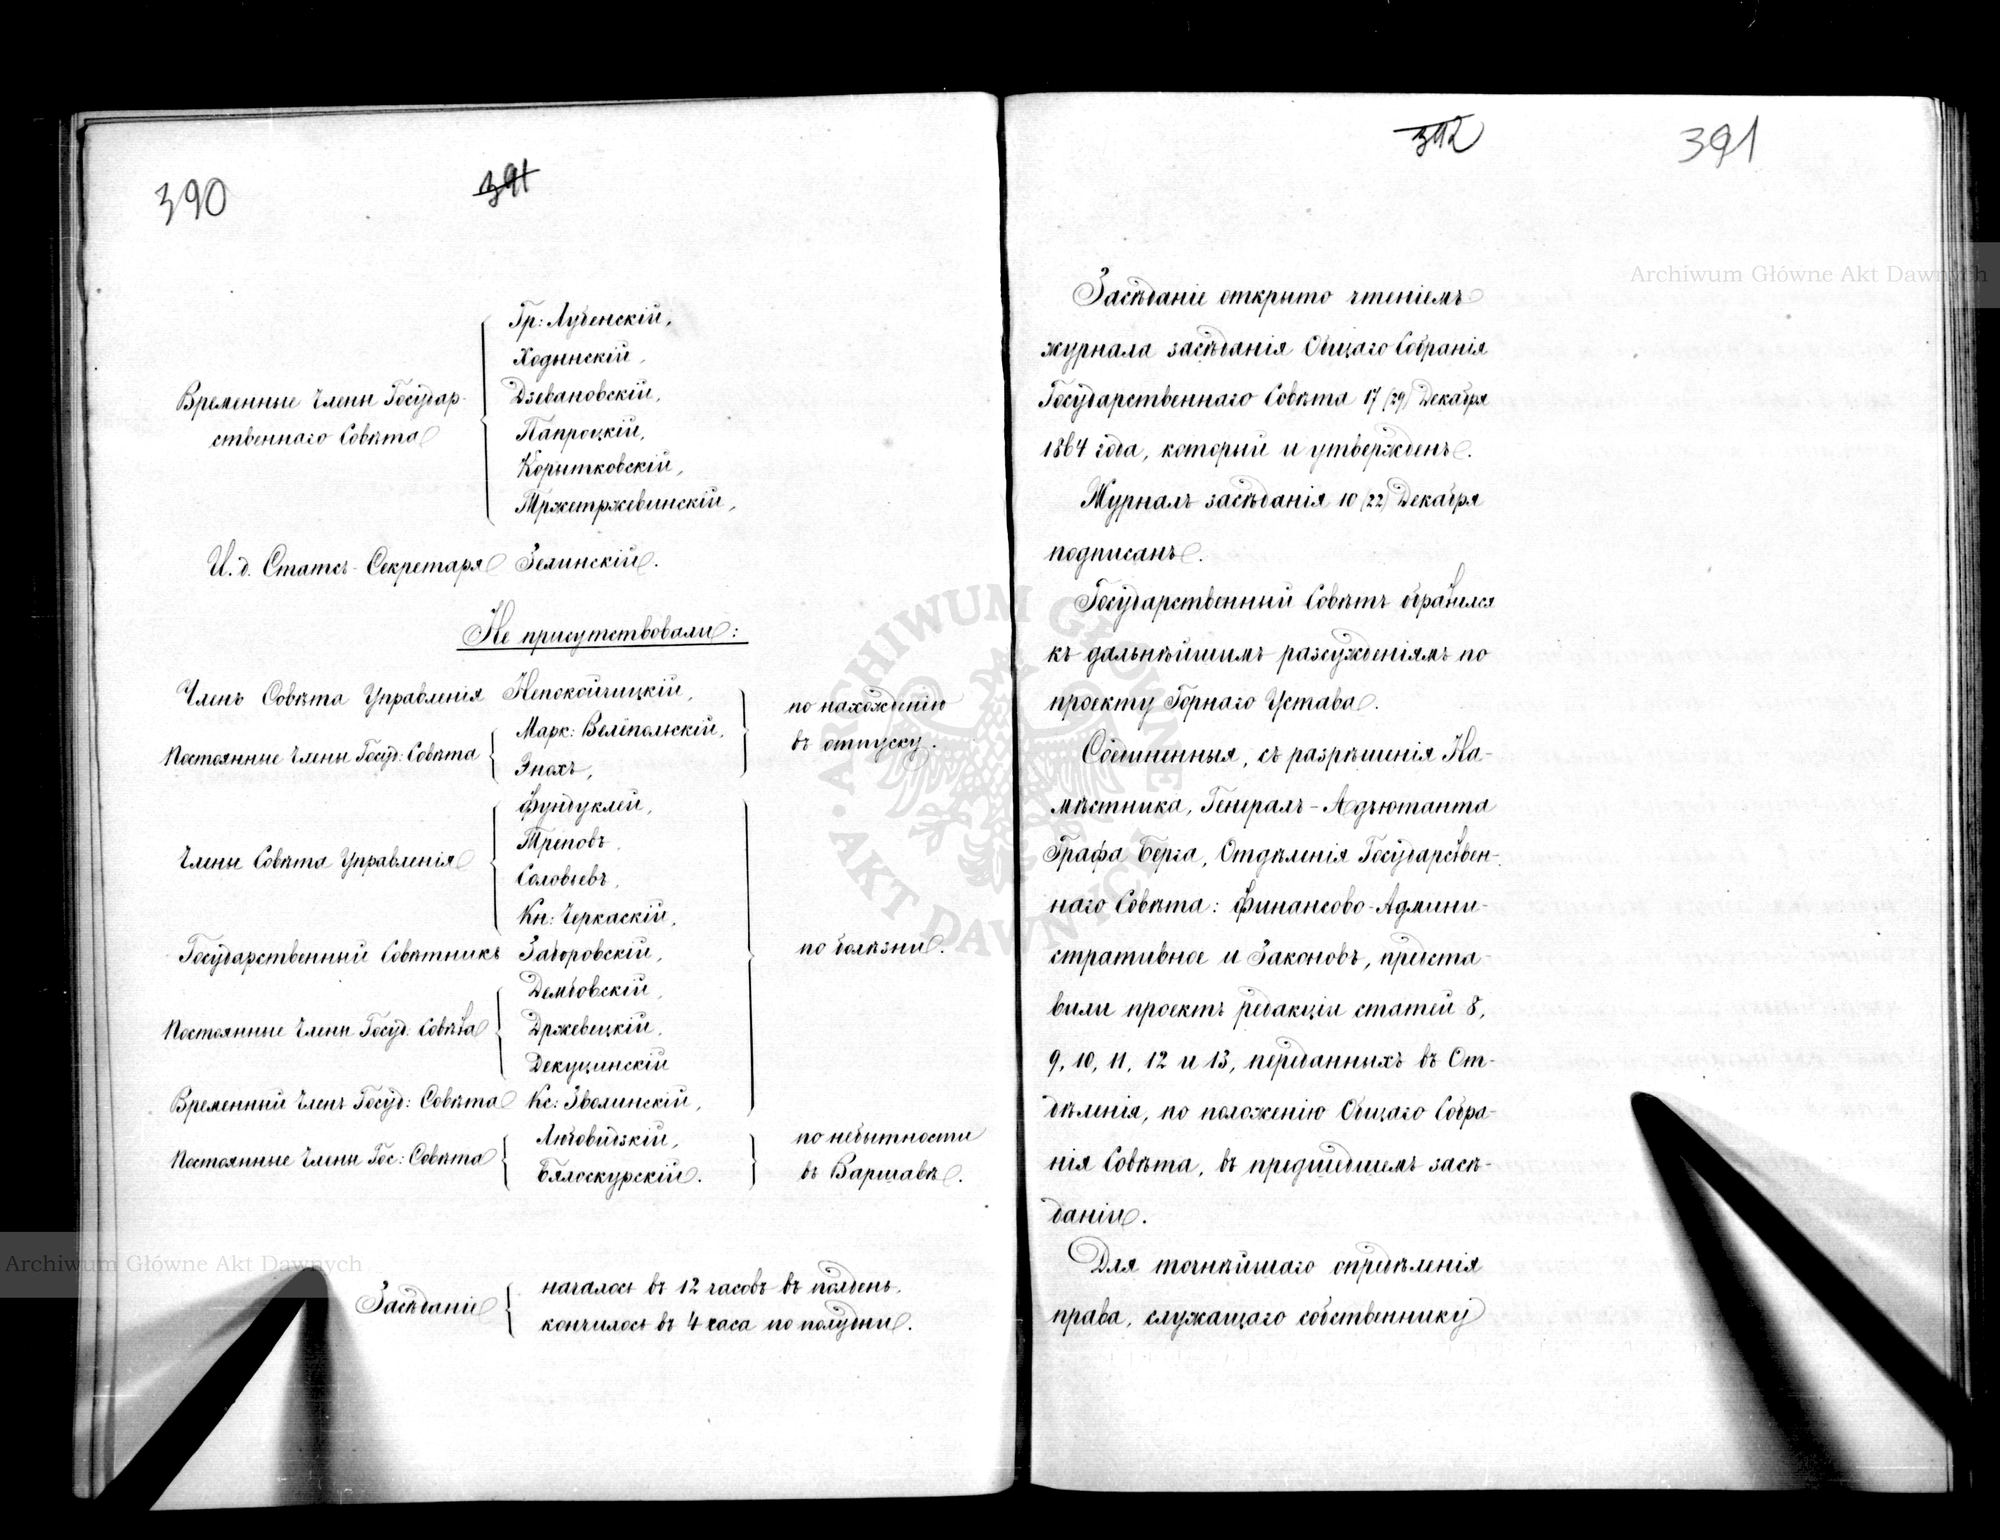 390
391
Временные Члены Государ-
ственнаго Совѣта
Гр: Лубенскій,
Ходынскій,
Дзевановскій,
Папроцкій,
Корытковскій,
Тржетржевинскій,
И. д. Статсъ-Секретаря Зелинскій.
Не присутствовали:
Членъ Совѣта Управленія Непокойчицкій,
Постоянные Члены Госуд: Совѣта
Марк: Велёпольскій,
Энохъ,
по нахожденію
въ отпуску.
Члены Совѣта Управленія
Фундуклей,
Треповъ,
Соловьевъ,
Кн: Черкаскій,
Государственный Совѣтникъ Заборовскій,
Постоянные Члены Госуд. Совѣта
Дембовскій,
Држевецкій,
Декуцинскій
Временный Членъ Госуд: Совѣта Кс: Зволинскій,
по болѣзни.
Постоянные Члены Гос: Совѣта
Любовидзкій,
Бялоскурскій.
по небытности
въ Варшавѣ.
Засѣданіе
началось въ 12 часовъ въ полдень,
кончилось въ 4 часа по полудни.
392
391
Засѣданіе открыто чтеніемъ
журнала засѣданія Общаго Собранія
Государственнаго Совѣта 17 (29) Декабря
1864 года, который и утвержденъ.
Журналъ засѣданія 10 (22) Декабря
подписанъ.
Государственный Совѣтъ обратился
къ дальнѣйшимъ разсужденіямъ по
проекту Горнаго Устава.
Соединенныя, съ разрѣшенія На-
мѣстника, Генералъ-Адъютанта
Графа Берга, Отдѣленія Государствен-
наго Совѣта: Финансово-Админи-
стративное и Законовъ, предста-
вили проектъ редакціи статей 8,
9, 10, 11, 12 и 13, переданныхъ въ От-
дѣленія, по положенію Общаго Собра-
нія Совѣта, въ предшедшемъ засѣ-
даніи.
Для точнѣйшаго опредѣленія
права, служащаго собственнику
Archiwum Główne Akt Dawnych
Archiwum Główne Akt Dawnych
ARCHIWUM GŁÓWNE AKT DAWNYCH